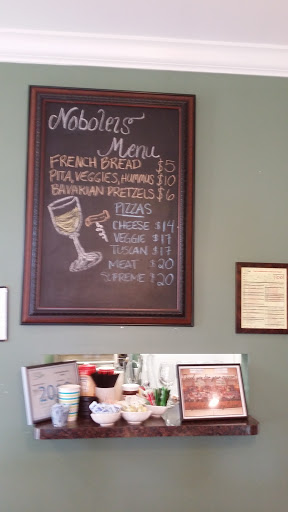 Noboleis
Menu
FRENCH BREAD $5
PITA, VEGGIES, HUMMUS $10
BAVARIAN PRETZELS $6
PIZZAS
CHEESE $14
VEGGIE $17
TUSCAN $17
MEAT $20
SUPREME $20
20